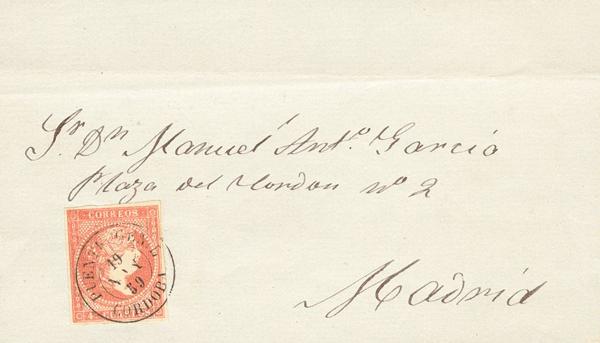 Sr. Dn Manuel Anto. Garcia
Plaza del Cordon nº 2
Madrid
CORREOS
PUENTE GENIL
19
59
CORDOBA